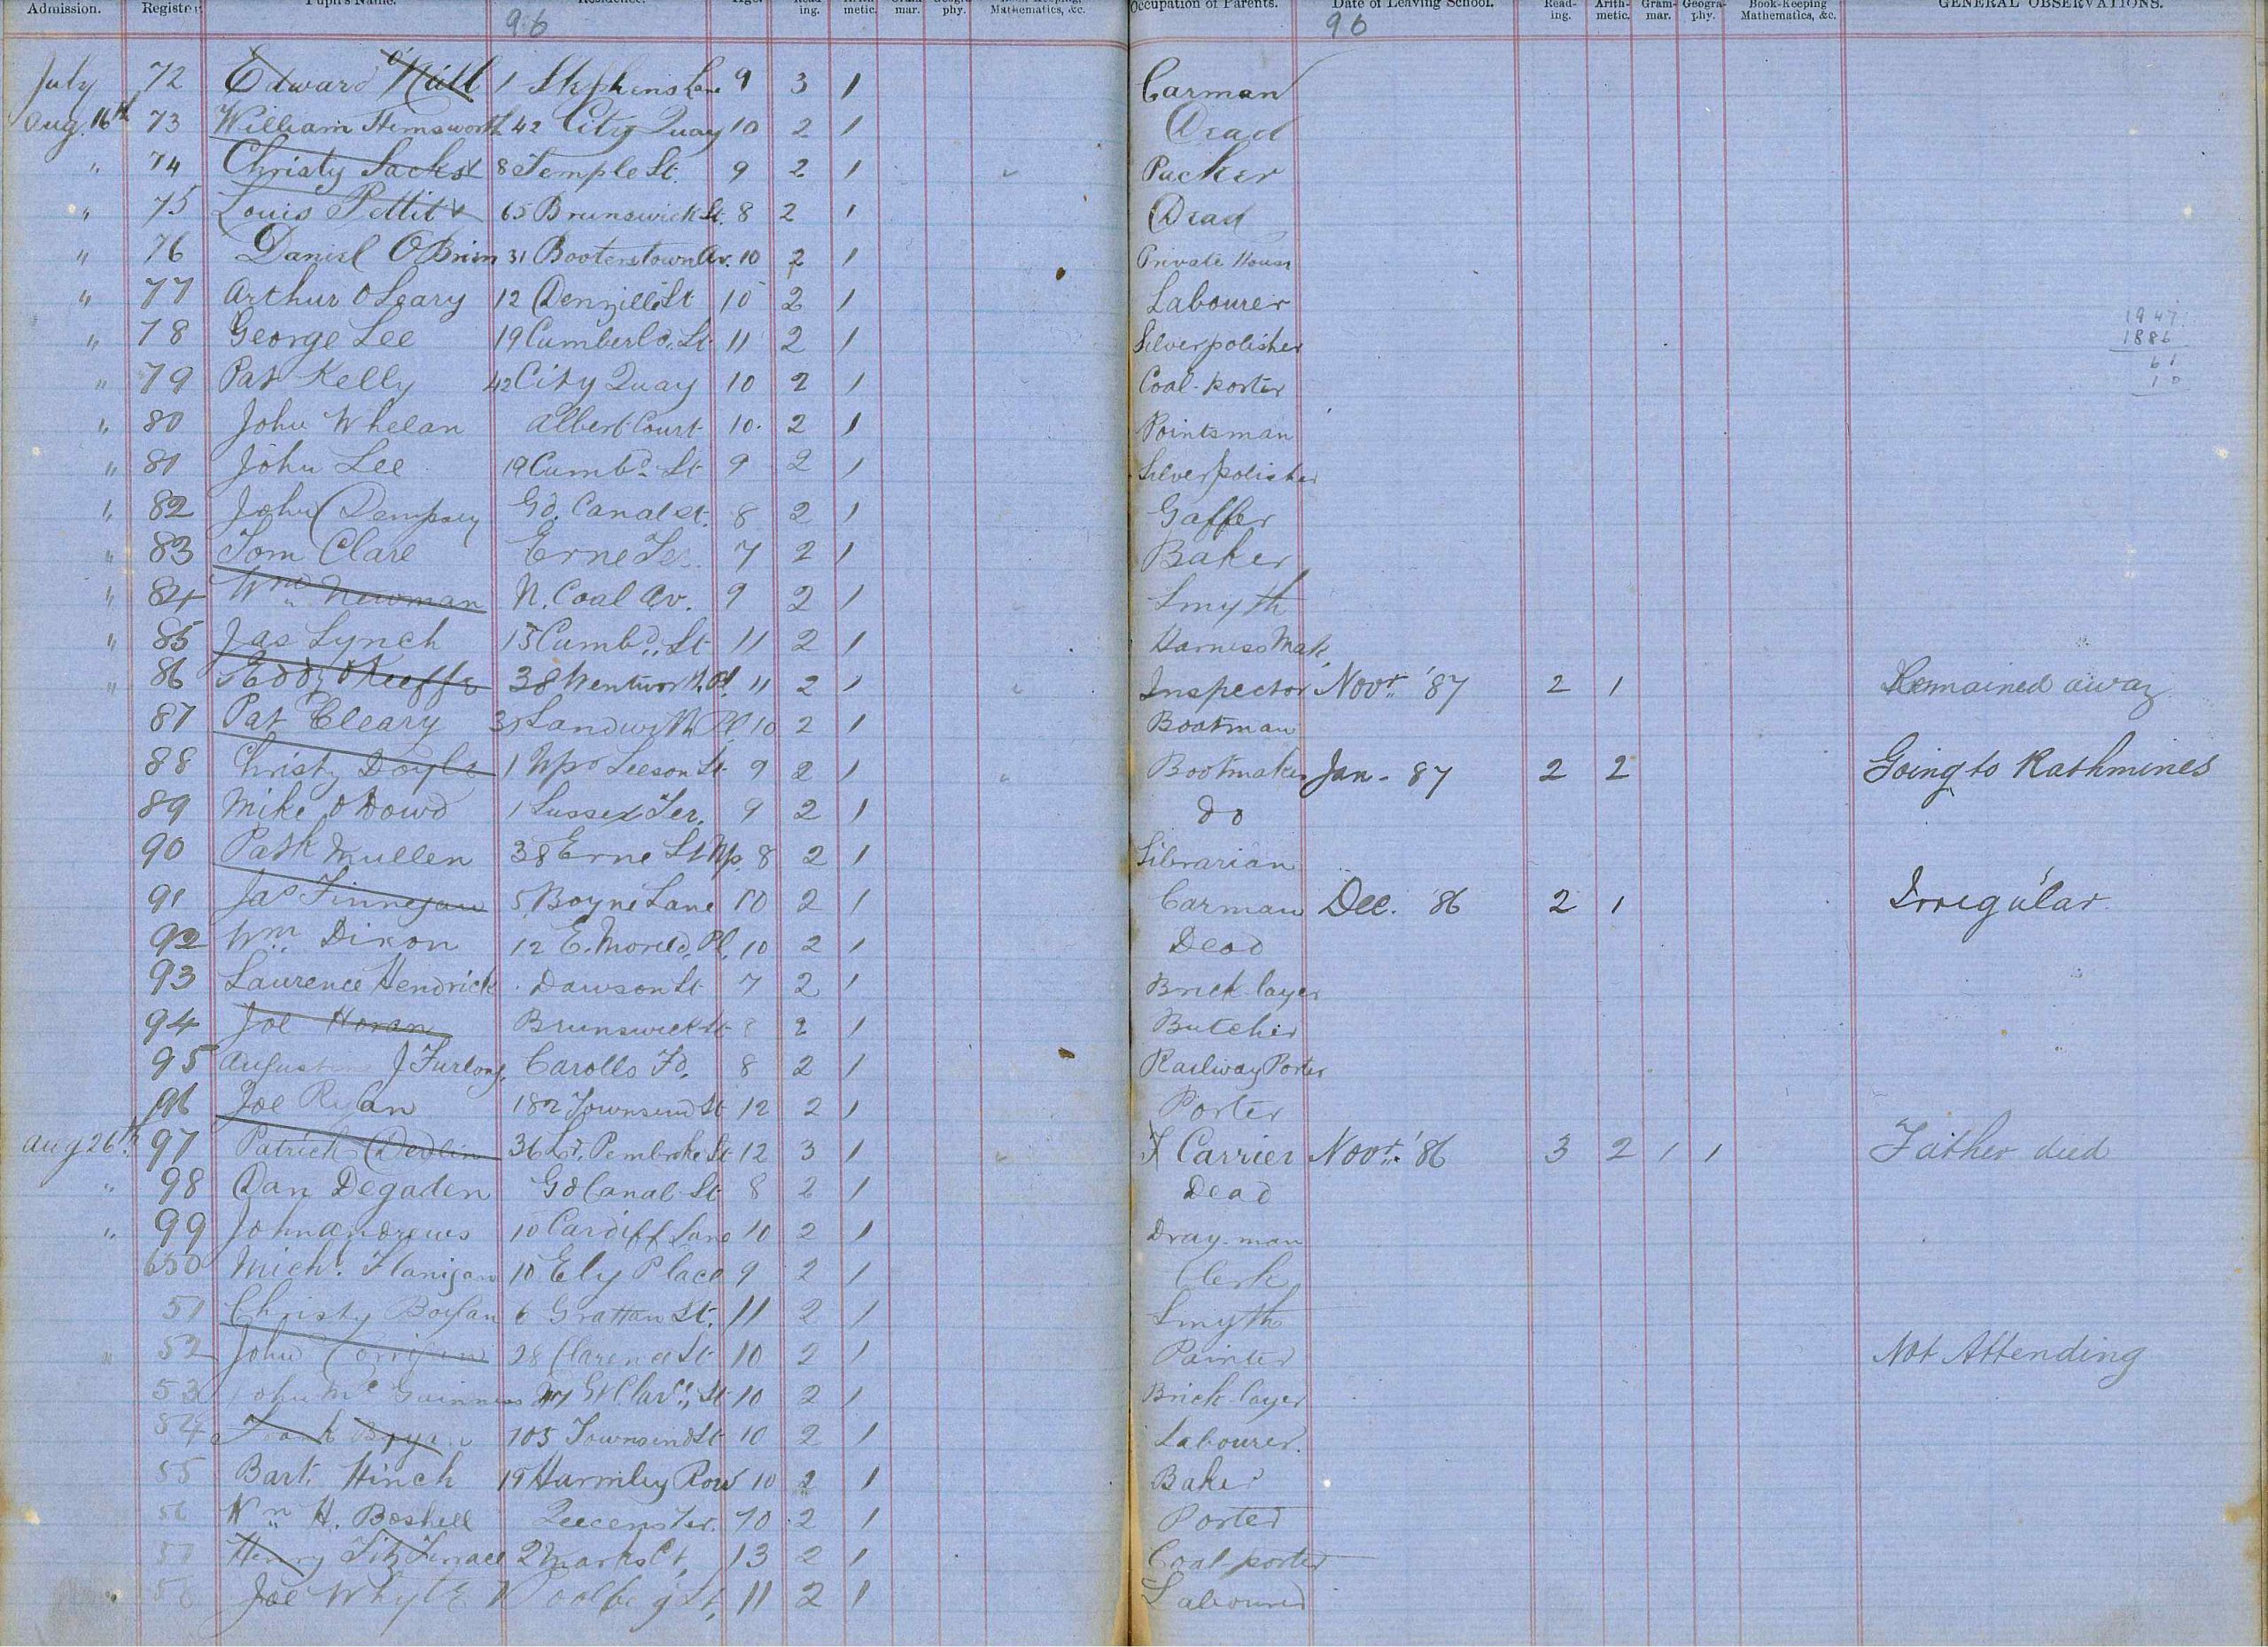 Admission. Register Pupil's Name. Residence. Age. Read-ing. Arith-metic. Gram-mar. Geogra-phy. Book-Keeping, Mathematics, &c. Occupation of Parents. Date of Leaving School. Read-ing. Arith-metic. Gram-mar. Geogra-phy. Book-Keeping Mathematics, &c. GENERAL OBSERVATIONS.
96 96
July 72 Edward 1 Stephens Lane 9 3 1 Carman
Aug. 16th 73 William Hemsworth 42 City Quay 10 2 1 Dead
" 74 Christy 8 Temple St. 9 2 1 Packer
" 75 Louis Pettit 65 Brunswick St. 8 2 1 Dead
" 76 Daniel O'Brien 31 Booterstown Av. 10 2 1 Private House
" 77 Arthur O Leary 12 Denzille St 10 2 1 Labourer
" 78 George Lee 19 Cumberld. St 11 2 1 Silver polisher
" 79 Pat Kelly 42 City Quay 10 2 1 Coal-porter
" 80 John Whelan Albert Court 10. 2 1 Pointsman
" 81 John Lee 19 Cumbd. St 9 2 1 Silver polisher
" 82 John Dempsey Gd. Canal St. 8 2 1 Gaffer
" 83 Tom Clare Erne Ter. 7 2 1 Baker
" 84 Wm. Newman N. Coal Av. 9 2 1 Smyth
" 85 Jas Lynch 15 Cumbd. St 11 2 1 Harness Mak.
" 86 Eddy O'Keeffe 38 Wentworth Pl. 11 2 1 Inspector Novr. '87 2 1 Remained away
87 Pat Cleary Sandwith Pl 10 2 1 Boatman
88 Christy Doyle 1 Upr Leeson St 9 2 1 Bootmaker Jan - 87 2 2 Going to Rathmines
89 Mike O Dowd 1 Sussex Ter. 9 2 1 do
90 Patk Mullen 38 Erne St Up. 8 2 1 Librarian
91 Jas Finnegan 5 Boyne Lane 10 2 1 Carman Dec. '86 2 1 Irregular.
92 Wm. Dixon 12 E. Moreld. Pl. 10 2 1 Dead
93 Laurence Hendrick Dawson St 7 2 1 Brick layer
94 Joe Horan Brunswick St 8 2 1 Butcher
95 August J Furlong Carolls 8 2 1 Railway Porter
96 Joe Ryan 182 Townsend St 12 2 1 Porter
Aug 26th. 97 Patrick Devlin 36 Lr. Pembroke St 12 3 1 Carrier Novr. '86 3 2 1 1 Father died
" 98 Dan Degaden Gd Canal St 8 2 1 Dead
" 99 John Andrews 10 Cardiff Lane 10 2 1 Dray-man
650 Michl. Flanigan 10 Ely Place 9 2 1 Clerk
51 Christy Boylan 6 Grattan St. 11 2 1 Smyth
" 52 John Corrigan 28 Clarence St 10 2 1 Painter Not Attending
53 John Mc Guinness St 10 2 1 Brick-layer
54 Frank Bryan 105 Townsend St 10 2 1 Labourer.
55 Bart. Hinch 19 Harmley Row 10 2 1 Baker
56 Wm. H. Boshell Queens Ter. 10 2 1 Porter
57 Henry 2 Marks Ct. 13 2 1 Coal-porter
" 58 Joe Whyte Poolbeg St. 11 2 1 Labourer
1947
1886
61
10